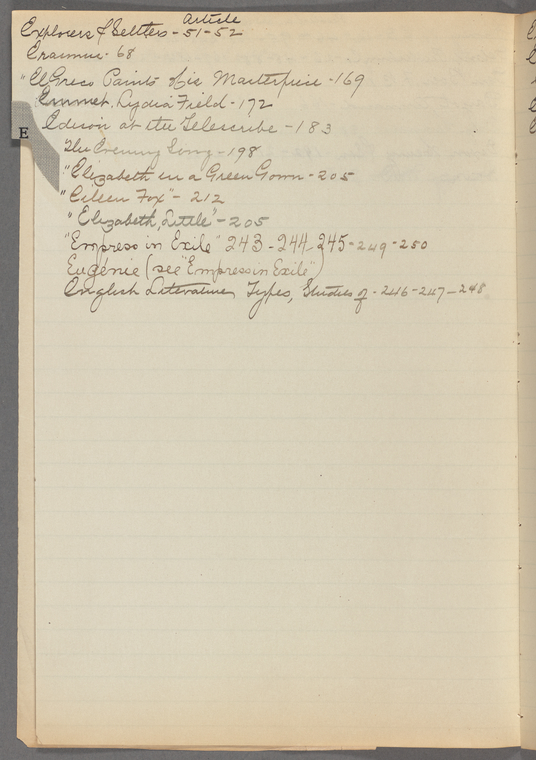 Article
Explorers & Settlers - 51-52
Erasmus - 68
"El Greco Paints His Masterpiece - 169
Emmet, Lydia Field - 172
Edison at the Telescribe - 183
E
The Evening Song - 198
"Elizabeth in a Green Gown - 205
"Eileen Fox" - 212
"Elizabeth, Little" - 205
"Empress in Exile" 243 - 244 - 245 - 249 - 250
Eugénie (see "Empress in Exile")
English Literature, Types, Studies of - 246 - 247 - 248